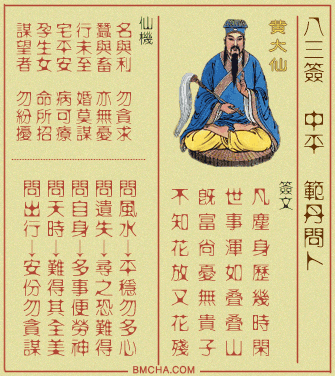 八三簽 中平 範丹問卜
黃大仙
簽文
凡塵身歷幾時閑
世事渾如叠叠山
既富尚憂無貴子
不知花放又花殘
仙機
名與利 勿貪求
蠶與畜 亦無憂
行未至 婚莫謀
宅平安 病可療
孕生女 命所招
謀望者 勿紛擾
問風水→平穩勿多心
問遺失→尋之恐難得
問自身→多事便勞神
問天時→難得其全美
問出行→安份勿貪謀
BMCHA.COM